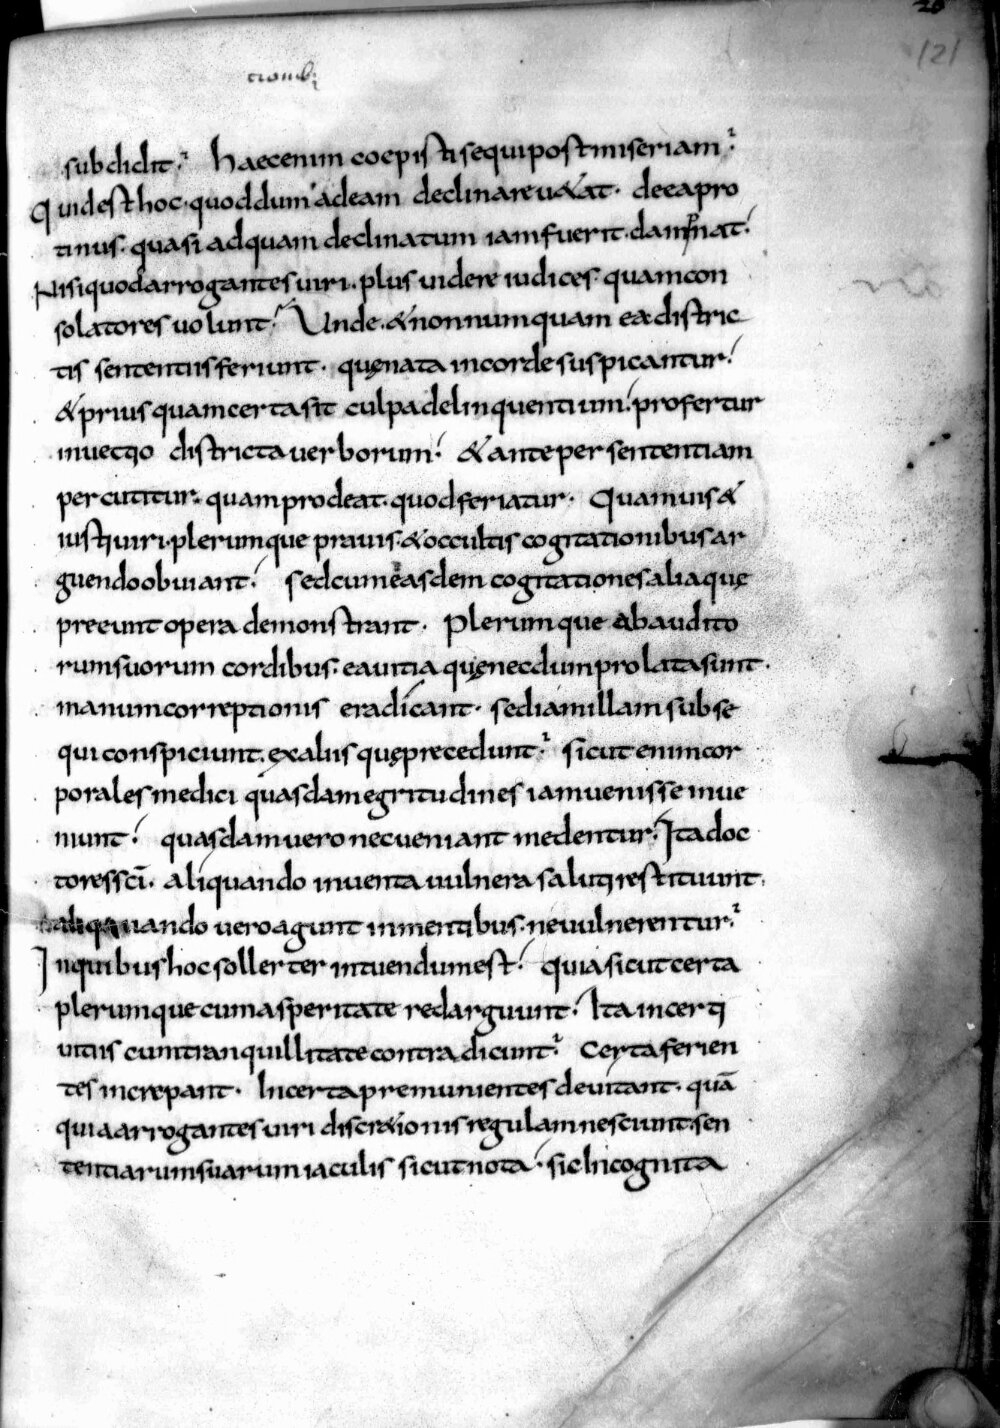 20
121
tionib;
subdidit. Haec enim coepisti sequi post miseriam.
Quid est hoc. quod dum ad eam declinare u&at. de ea pro
tinus. quasi ad quam declinatum iam fuerit. dampnat.
Nisi quod arrogantes uiri. plus uidere iudices. quam con
solatores uolunt. Unde. & non numquam ea distric
tis sententiis feriunt. quę nata in corde suspicantur.
& prius quam certa sit culpa delinquentium. profertur
inuectio districta uerborum. & ante per sententiam
percutitur. quam prodeat. quod feriatur. Quamuis &
iusti uiri. plerumque prauis. & occultis cogitationibus ar
guendo obuiant. sed cum easdem cogitationes alia quę
preeunt opera demonstrant. Plerumque ab audito
rum suorum cordibus. ea uitia quę necdum prolata sunt.
manum correptionis eradicant. sed iam illam subse
qui conspiciunt. ex aliis quę precedunt. sicut enim cor
porales medici quasdam egritudines iam uenisse inue
niunt. quasdam uero nec ueniant medentur. Ita doc
tores sci. aliquando inuenta uulnera saluti restituunt.
aliquando uero agunt in mentibus. ne uulnerentur.
In quibus hoc sollerter intuendum est. quia sicut certa
plerumque cum asperitate redarguunt. Ita incerti
uitiis cum tranquillitate contradicunt. Certa ferien
tes increpant. Incerta premunientes deuitant. quā
quia arrogantes uiri discr&ionis regulam nesciunt. sen
tentiarum suarum iaculis sicut nota. sic Incognita